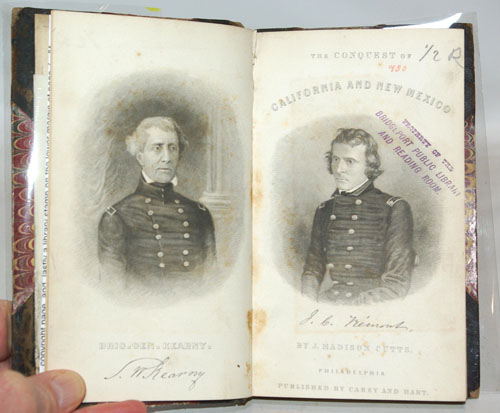 BRIG. GEN. KEARNY.
S. W. Kearny
THE CONQUEST OF
1/2 R
CALIFORNIA AND NEW MEXICO
PROPERTY OF THE
BRIDGEPORT PUBLIC LIBRARY
AND READING ROOM.
J. C. Frémont.
BY J. MADISON CUTTS.
PHILADELPHIA
PUBLISHED BY CAREY AND HART.